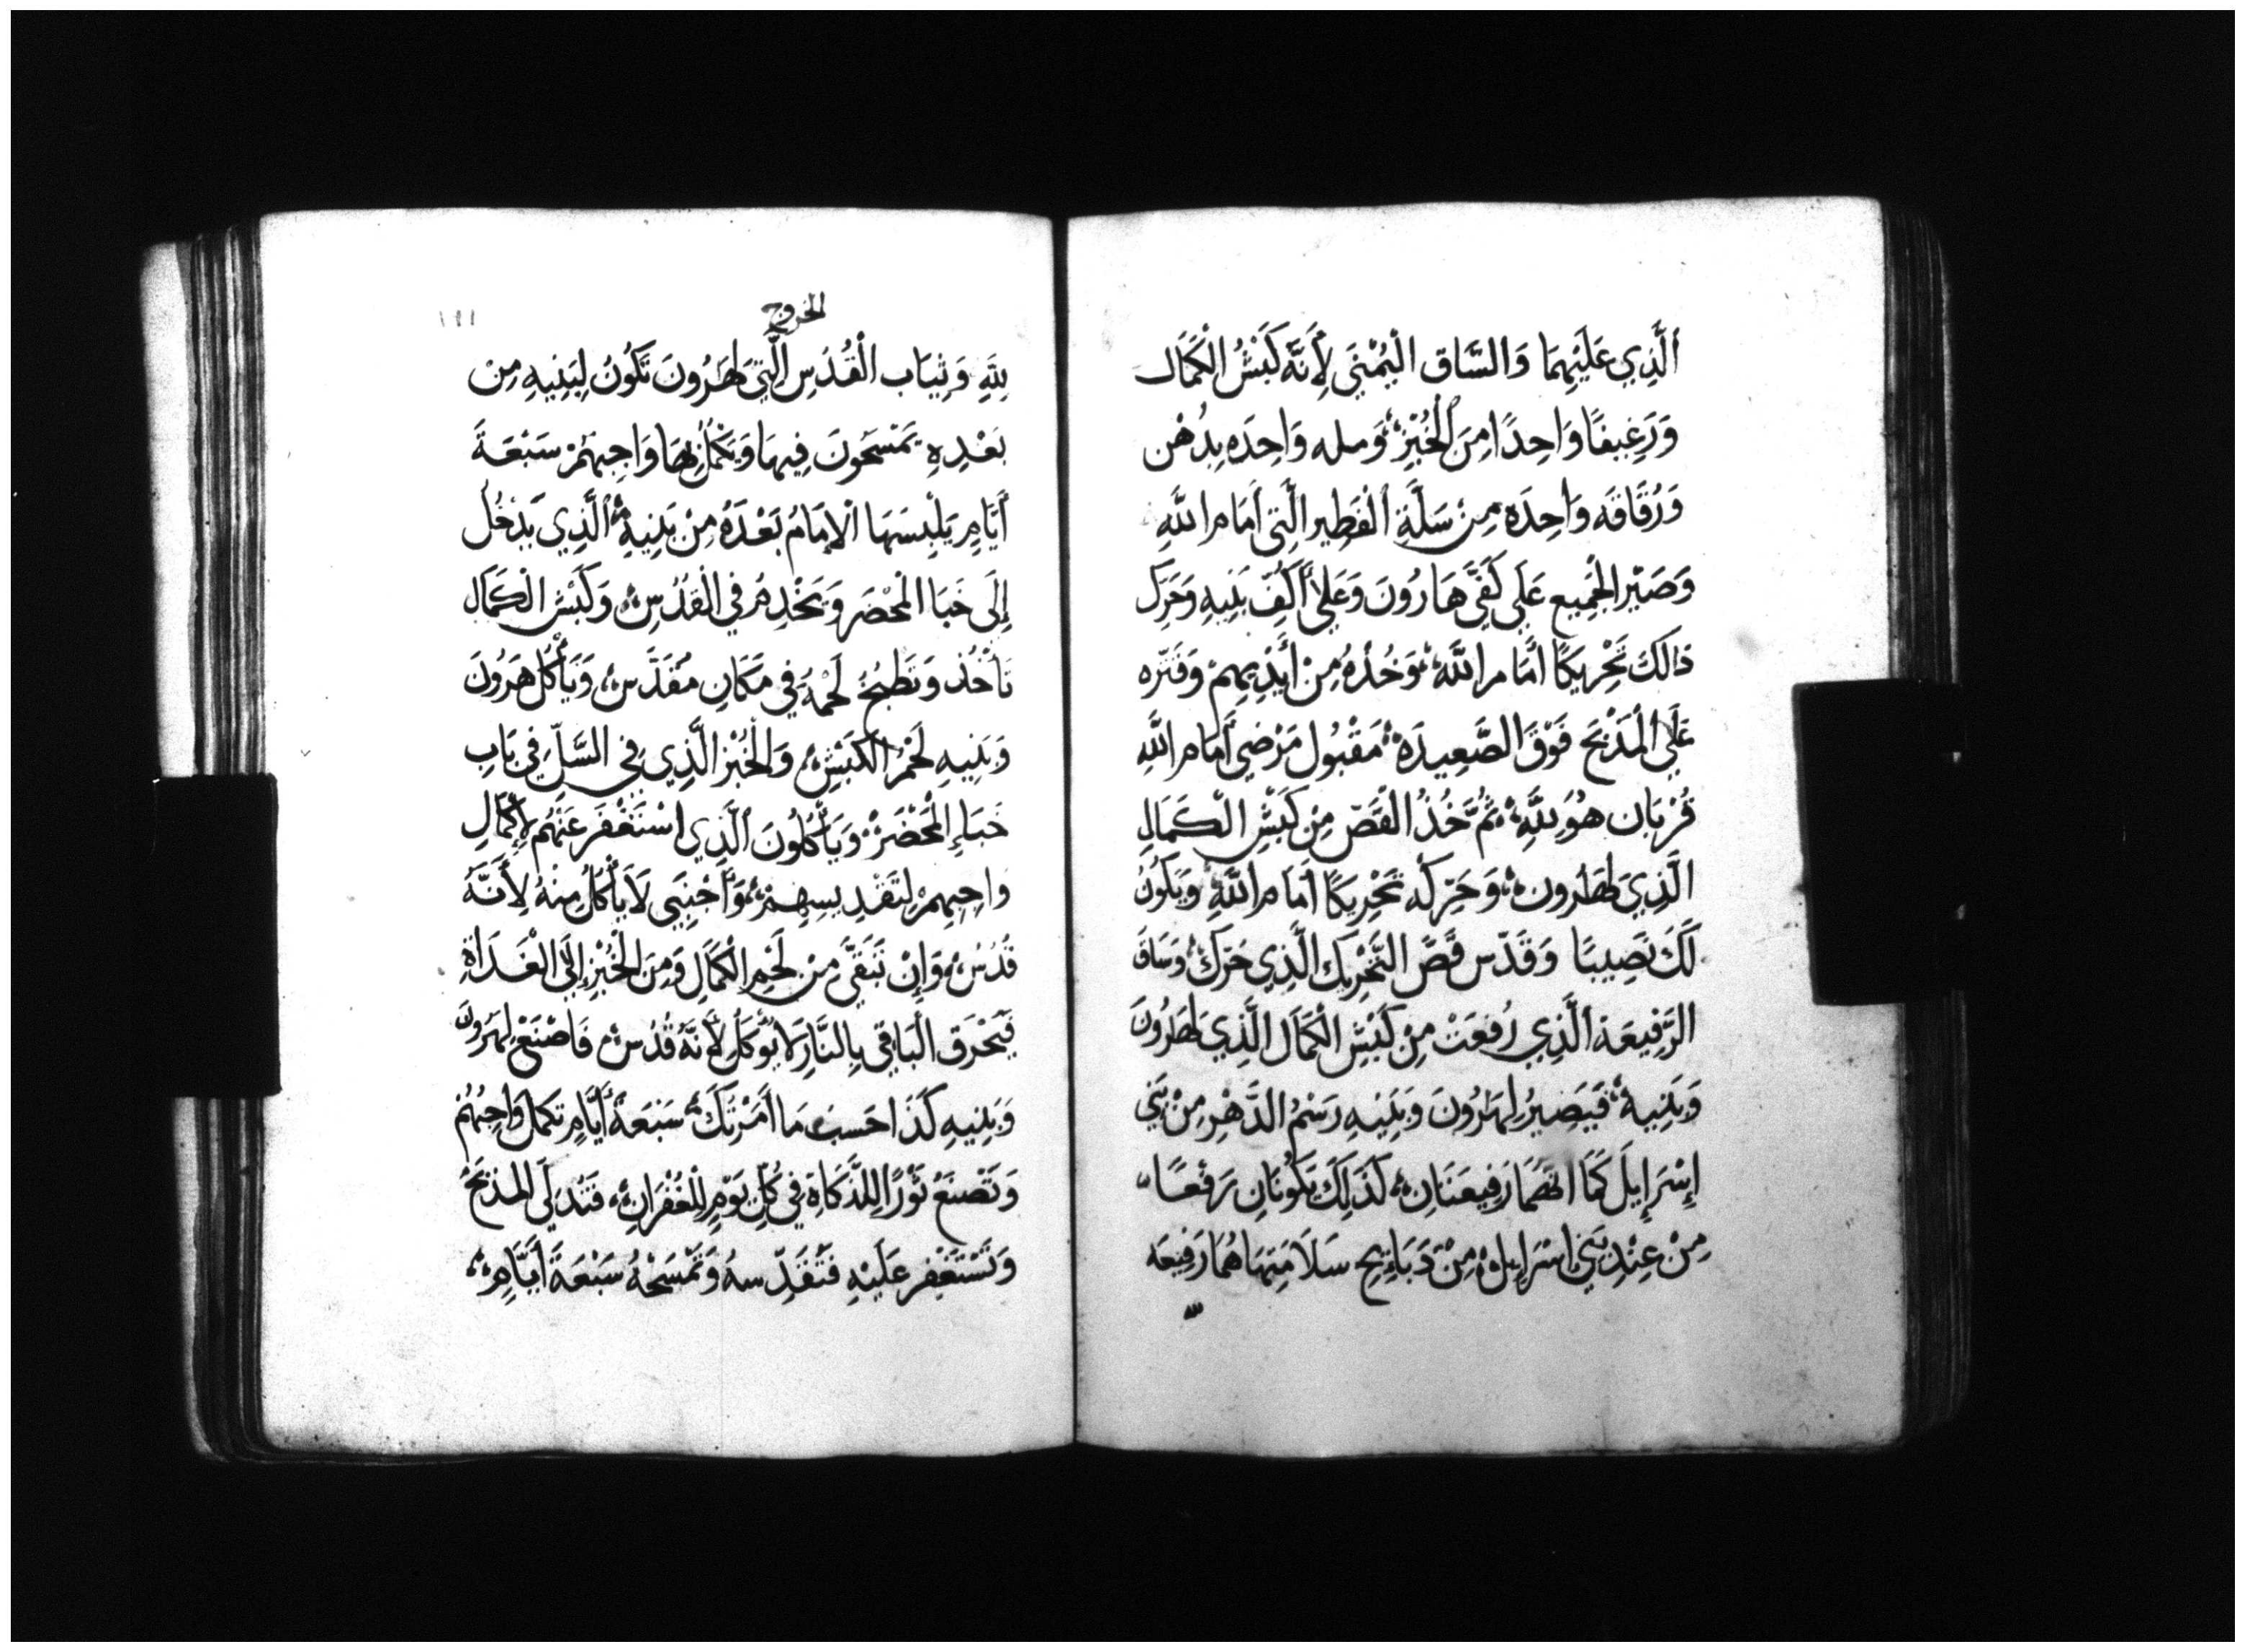 ٱلَّذِي عَلَيْهِمَا وَالسَّاق الْيُمْنَى لِأَنَّهُ كَبْشُ الْكَمَال
وَرَغِيفًا وَاحِدًا مِنَ الْخُبْزِ وَمله وَاحِدَه بِدُهْن
وَرُقَاقَه وَاحِدَه مِنْ سَلَّةِ ٱلْفَطِيرِ الَّتِى أَمَام اللَّهِ
وَصَيِّر الْجَمِيع عَلَى كَفَّي هَارُونَ وَعَلَى أَكُفّ بَنِيهِ وَحَرِّك
ذَالَكَ تَحْرِيكًا أَمَام اللَّه وَخُذْهُ مِنْ أَيْدِيهِمْ وَقَتّره
عَلَى الْمَذْبَحِ فَوْقَ الصَّعِيدَه مَقْبُول مَرْضِي أَمَام اللَّهِ
قُرْبَان هُوَ لِلَّهِ ثُمَّ خُذُ الْقَصّ مِنْ كَبْشِ الْكَمَالِ
الَّذِي لِهَرُون وَحَرِّكْه تَحْرِيكًا أَمَام اللَّهِ وَيَكُونُ
لَكَ نَصِيبًا وَقَدّس قَصَّ التَّحْرِيك الَّذِي حَرَّكَ وَسَاقَ
الرَّفِيعَة الَّذِي رُفِعَتْ مِنْ كَبْشِ الْكَمَال الَّذِي لِهَرُونَ
وَبَنِيه فَيَصِيرُ لِهَرُونَ وَبَنِيهِ رَسْمُ الدَّهْرِ مِنْ بَنِي
إِسْرَإِيلَ كَمَا انَّهُمَا رَفِيعَتَانِ كَذَلِكَ تَكُونَانِ رَفْعًا
مِنْ عِنْدِ بَنِي اسْرَإِيل مِنْ ذَبَائِحِ سَلَامَتِهَا هُمَا رَفِيعَه
لله
الخروج
١٩١
لِلَّهِ وَثِيَاب الْقُدُسِ الَّتِي لِهَرُونَ تَكُونُ لِبَنِيهِ مِنْ
بَعْدِهِ يَمْسَحُونَ فِيهَا وَيَكْمُل بِهَا وَاجِبهُمْ سَبْعَةَ
أَيَّامٍ يَلْبِسَهَا الْإِمَامُ بَعْدَهُ مِنْ بَنِيهِ الَّذِي يَدْخُل
إِلَى خَبَا الْمَحْضَر وَيَخْدِمُ فِي الْقُدْسِ وَكَبْش الْكَمَال
تَأْخُذ وَتَطْبُخُ لَحْمهُ فِي مَكَانٍ مُقَدَّس وَيَأْكُل هَرُونَ
وَبَنِيهِ لَحْم الْكَبْشِ وَالْخُبْز الَّذِي فِي السَّلّ فِي بَابِ
خَبَاءِ الْمَحْضَر وَيَأْكُلُونَ الَّذِي اسْتَغْفَرَ عَنْهُم لِإِكْمَالِ
وَاجِبِهِمْ لِتَقْدِيسِهِمْ وَأَجْنَبِي لَا يَأْكُلُ مِنْهُ لِأَنَّهُ
قُدُسُ وَإِنْ تَبَقَّى مِنْ لَحْمِ الْكَمَالِ وَمِنَ الْخُبْزِ إِلَى الْغَدَاةِ
فَيُحْرَق الْبَاقِي بِالنَّارِ لَا يُؤكَل لِأَنَّهُ قُدُس فَاصْنَعْ لِهَرُونَ
وَبَنِيهِ كَذَا حَسَب مَا أَمَرْتُكَ سَبْعَة أَيَّامٍ تكمل وَاجِبُهُمْ
وَتَصْنَعُ ثَوْرًا لِلذَّكَاةِ فِي كُلِّ يَوْمٍ لِلْغُفْرَان فَتُدَلِّي الْمَذْبَحُ
وَتَسْتَغْفِر عَلَيْهِ فَتُقَدِّسهُ وَتَمْسَحْهُ سَبْعَةَ أَيَّامٍ